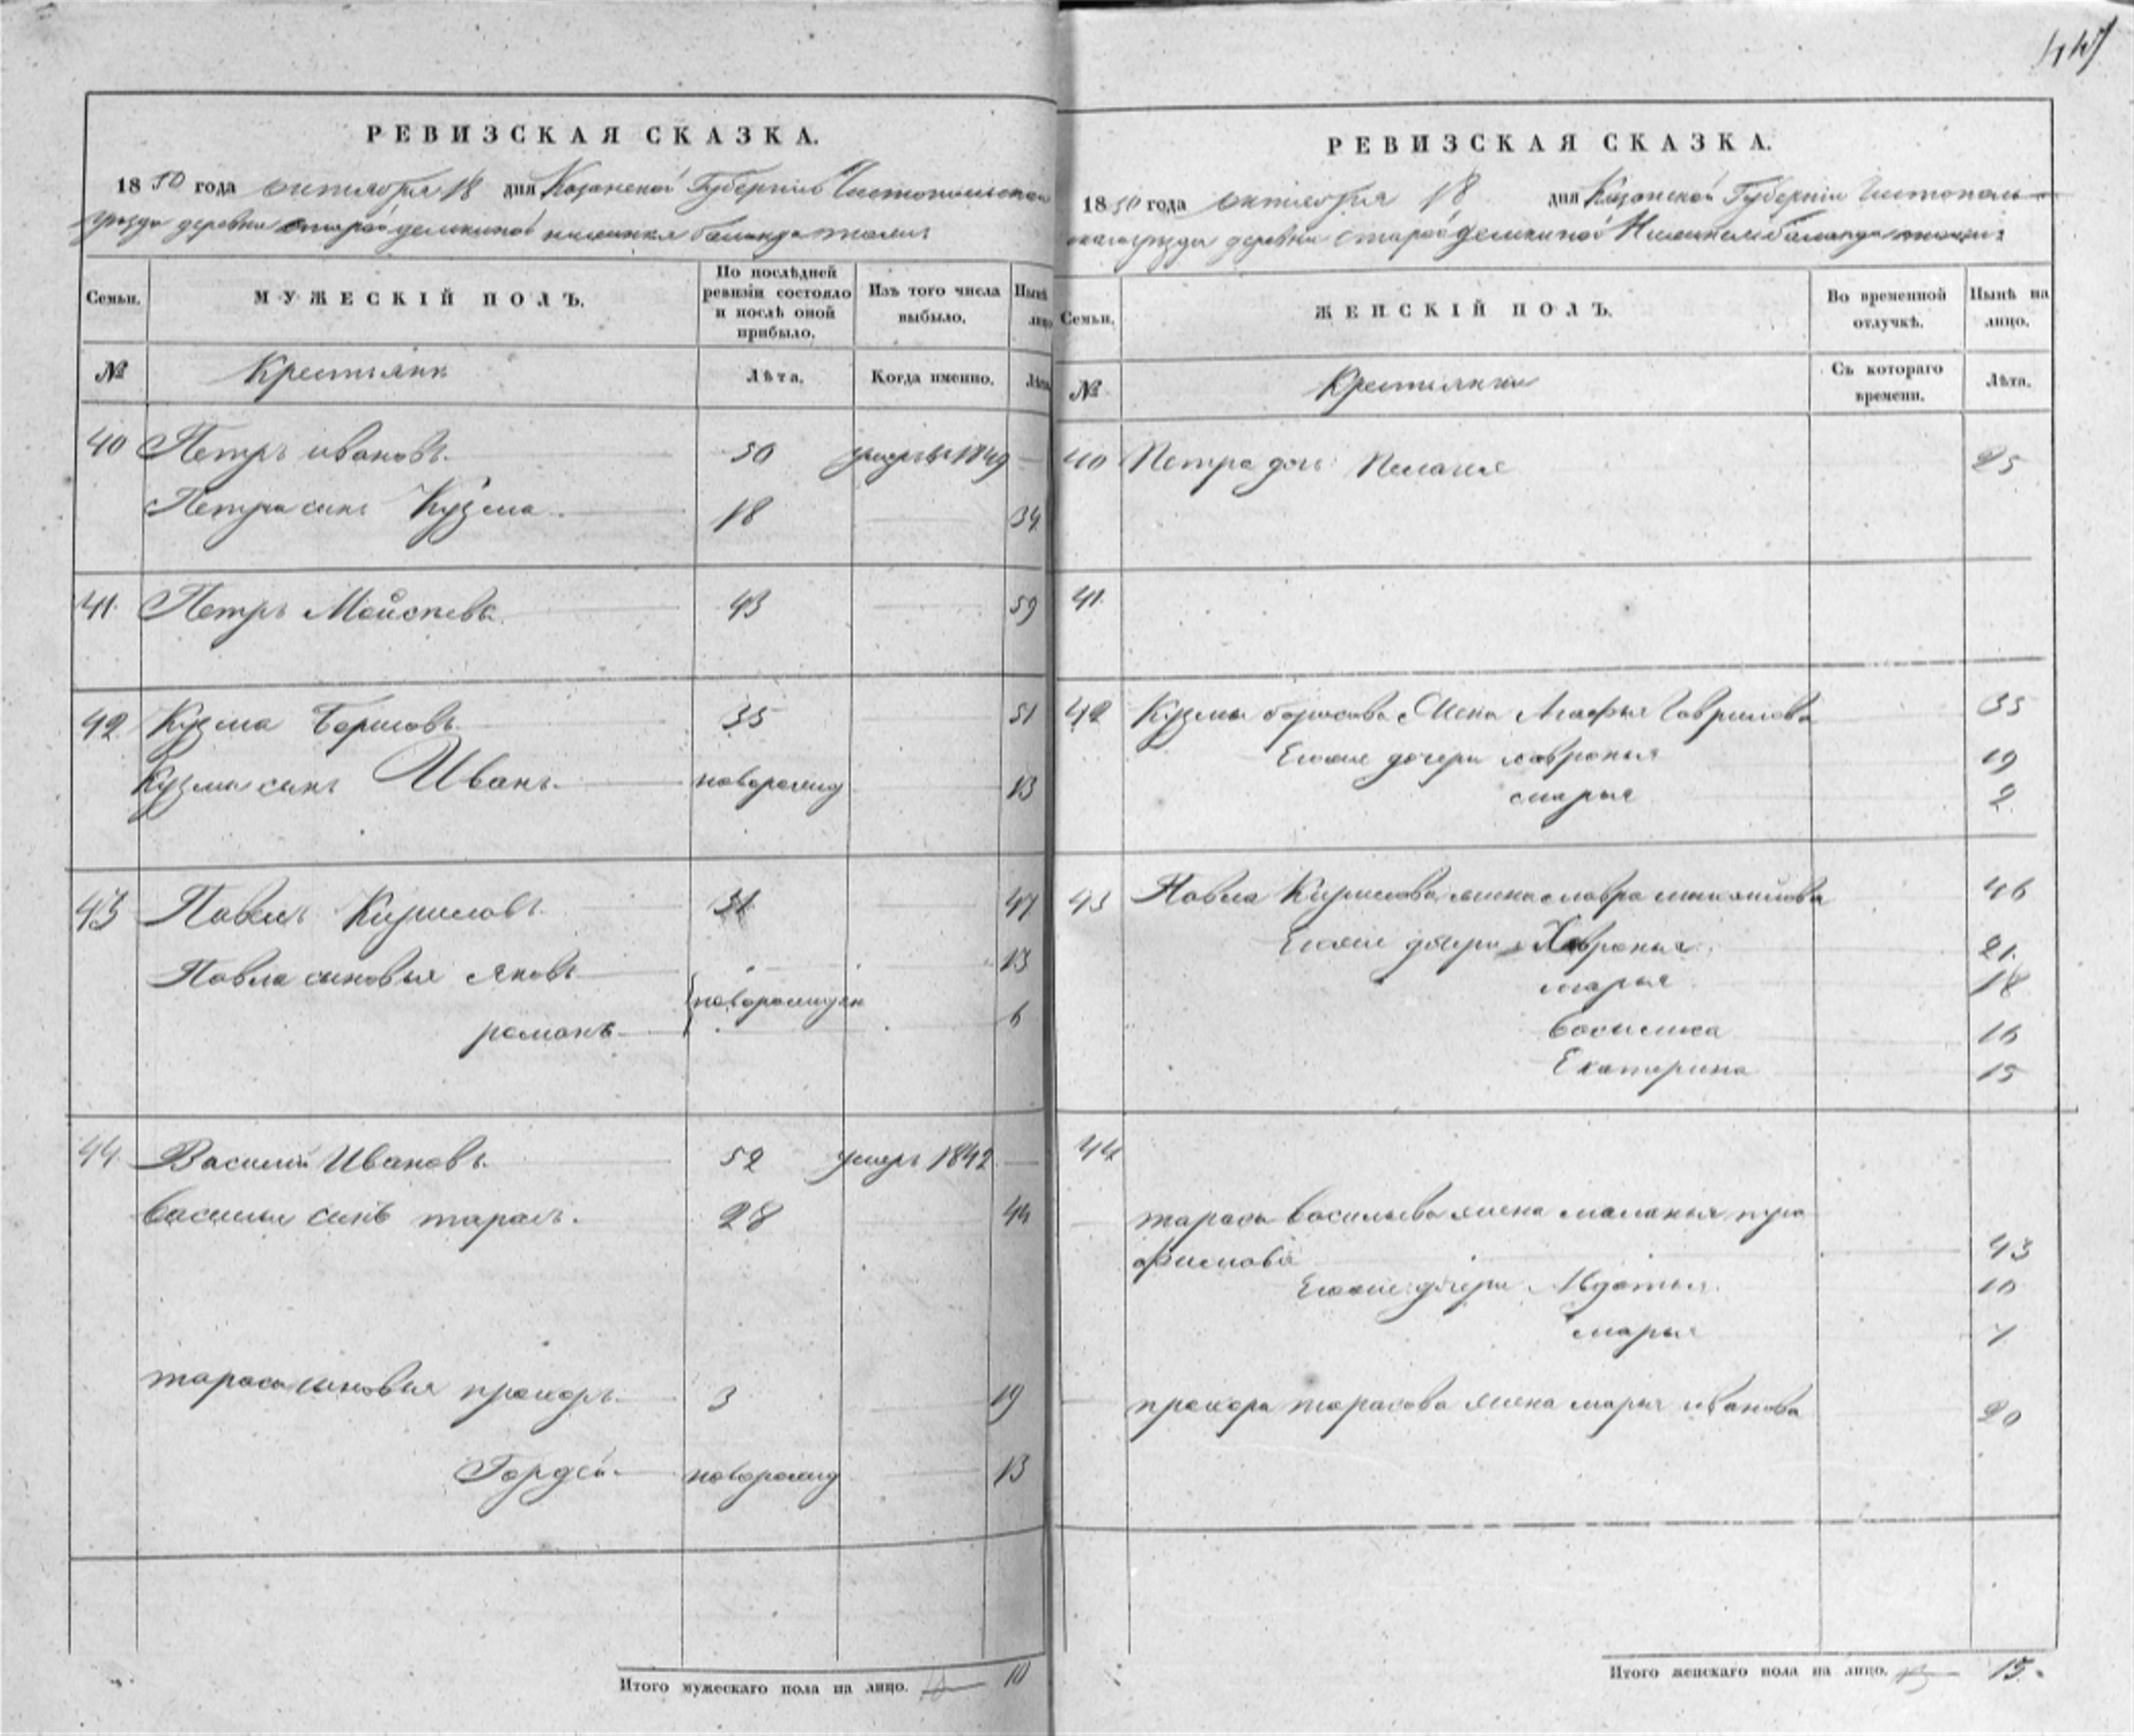 РЕВИЗСКАЯ СКАЗКА.
1850 года октября 18 дня Казанской Губернии Чистопольского
уезда деревни старой
Семьи. МУЖЕСКІЙ ПОЛЪ. По послѣдней ревизіи состояло и послѣ оной прибыло. Изъ того числа выбыло. Нынѣ лицо
№ Крестьяни Лѣта. Когда именно. Лѣта
40 Петръ ивановъ. 50 умеръ 1849 —
Петра сынъ Кузма 18 34
41. Петръ Мойсиевъ 43 59
42 Кузма Борисовъ 35 51
Кузмы сынъ Иванъ. новорожд 13
43 Павелъ Кириловъ 31 47
Павла сыновья яковъ 13
новорожден
романъ 6
44. Василий Ивановъ. 52 умеръ 1842 —
василья сынъ тарасъ. 28 44
тараса сыновья прохоръ 3 19
Гордей новорожд 13
Итого мужескаго пола на лицо. 10
РЕВИЗСКАЯ СКАЗКА.
1850 года октября 18 дня Казанской Губернии Чистополь-
скаго уезда деревни старой
Семьи. ЖЕНСКІЙ ПОЛЪ. Во временной отлучкѣ. Нынѣ на лицо.
№ Крестьянки Съ котораго времени. Лѣта.
40 Петра дочь Пелагея 25
41.
42 Кузмы борисова жена Агафья Гаврилова 35
Егоже дочери хавронья 19
марья 2
43 Павла Кирилова жена мавра 46
Егоже дочери Хавронья 21.
марья 18
василиса 16
Екатерина 15
44
тараса васильева жена маланья тро
фимова 43
Егоже дочери Авдотья. 10
марья 7
прохора тарасова жена марья иванова 20
Итого женскаго пола на лицо. 13.